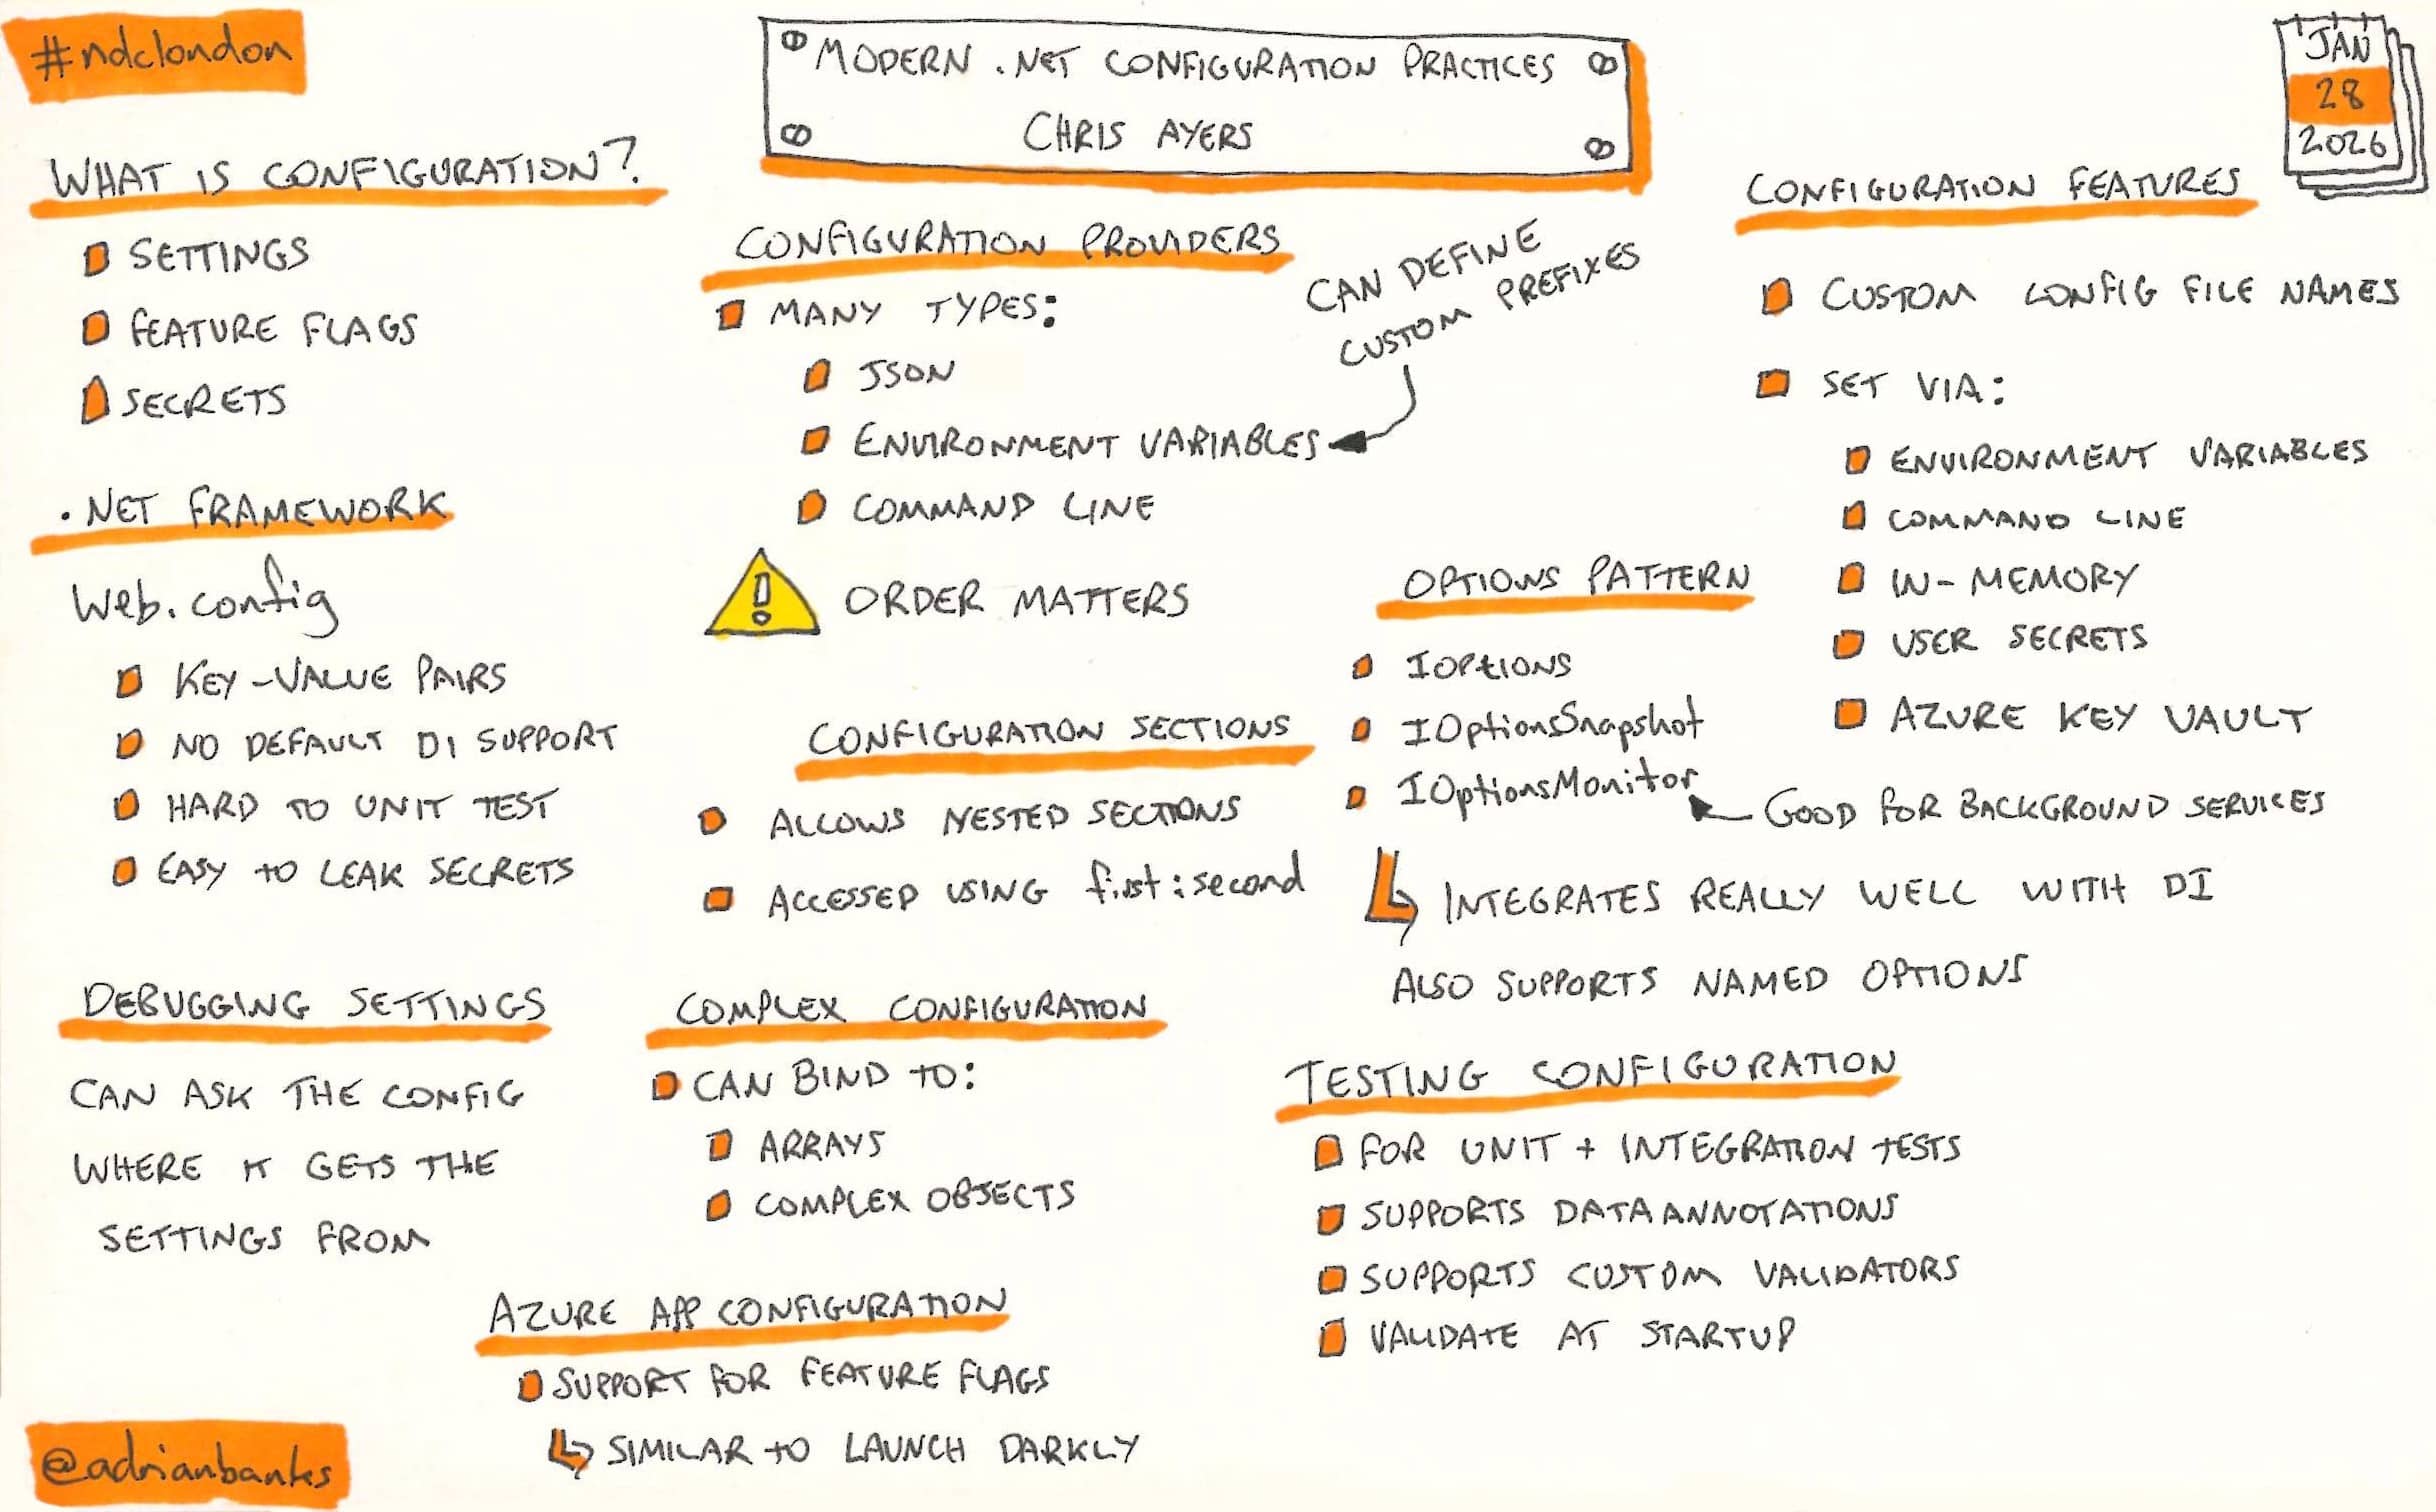 #ndclondon
MODERN .NET CONFIGURATION PRACTICES
CHRIS AYERS
JAN
28
2026
WHAT IS CONFIGURATION?
SETTINGS
FEATURE FLAGS
SECRETS
.NET FRAMEWORK
Web.config
KEY-VALUE PAIRS
NO DEFAULT DI SUPPORT
HARD TO UNIT TEST
EASY TO LEAK SECRETS
DEBUGGING SETTINGS
CAN ASK THE CONFIG
WHERE IT GETS THE
SETTINGS FROM
CONFIGURATION PROVIDERS
MANY TYPES:
JSON
ENVIRONMENT VARIABLES
CAN DEFINE
CUSTOM PREFIXES
COMMAND LINE
ORDER MATTERS
CONFIGURATION SECTIONS
ALLOWS NESTED SECTIONS
ACCESSED USING first:second
COMPLEX CONFIGURATION
CAN BIND TO:
ARRAYS
COMPLEX OBJECTS
AZURE APP CONFIGURATION
SUPPORT FOR FEATURE FLAGS
SIMILAR TO LAUNCH DARKLY
CONFIGURATION FEATURES
CUSTOM CONFIG FILE NAMES
SET VIA:
ENVIRONMENT VARIABLES
COMMAND LINE
IN-MEMORY
USER SECRETS
AZURE KEY VAULT
OPTIONS PATTERN
IOPtIONS
IOptionsSnapshot
IOptionsMonitor
GOOD FOR BACKGROUND SERVICES
INTEGRATES REALLY WELL WITH DI
ALSO SUPPORTS NAMED OPTIONS
TESTING CONFIGURATION
FOR UNIT + INTEGRATION TESTS
SUPPORTS DATAANNOTATIONS
SUPPORTS CUSTOM VALIDATORS
VALIDATE AT STARTUP
@adrianbanks